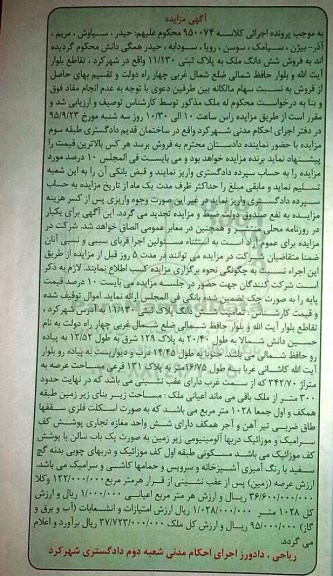 آگهی مزایده
به موجب پرونده اجرائی کلاسه ۹۵۰۰۷۴ محکوم علیهم: حیدر ، سیاوش ، مریم ،
آذر- بیژن ، سیامک ، سوسن ، رویا ، سودابه ، حیدر همگی دانش محکوم گردیده
اند به فروش شش دانگ ملک به پلاک ثبتی ۱۱/۱۳۰ واقع در شهرکرد ، تقاطع بلوار
آیت الله و بلوار حافظ شمالی ضلع شمال غربی چهار راه دولت و تقسیم بهای حاصل
از فروش به نسبت سهام مالکانه بین طرفین دعوی با توجه به عدم انجام مفاد فوق
و بنا به درخواست محکوم له ملک مذکور توسط کارشناس توصیف و ارزیابی شد و
مقرر است از طریق مزایده راس ساعت ۱۰ الی ۱۰/۳۰ روز سه شنبه مورخ ۹۵/۹/۲۳
در دفتر اجرای احکام مدنی شهرکرد واقع در ساختمان قدیم دادگستری طبقه سوم
مزایده با حضور نماینده دادستان محترم به فروش برسد هر کس بالاترین قیمت را
پیشنهاد نماید برنده مزایده خواهد بود و می بایست فی المجلس ۱۰ درصد مورد
مزایده را به حساب سپرده دادگستری واریز نمایند و فیش بانکی آن را به این شعبه
تسلیم نماید و مابقی مبلغ را حداکثر ظرف مدت یک ماه از تاریخ مزایده به حساب
سپرده دادگستری واریز نماید در غیر این صورت وجوه واریزی پس از کسر هزینه
مزایده به نفع صندوق دولت ضبط و مزایده تجدید می گردد. این آگهی برای یکبار
در روزنامه محلی منتشر و همچنین در معابر عمومی الصاق خواهد شد. شرکت در
مزایده برای عموم آزاد است به استثناء مسئولین اجرا اقربای سببی و نسبی آنان
ضمنا متقاضیان شرکت در مزایده می توانند در مدت ۵ روز قبل از مزایده از طریق
این اجراء نسبت به چگونگی نحوه برگزاری مزایده کسب اطلاع نمایند. لازم به ذکر
است شرکت کنندگان جهت حضور در جلسه مزایده می بایست ۱۰ درصد قیمت
پایه را به صورت چک تضمین شده بانکی فی المجلس ارائه نماید. اموال توقیف شده
و قیمت کارشناس: ششدانگ پلاک ثبتی ۱۱/۱۳۰ به آدرس شهرکرد ،
تقاطع بلوار آیت الله و بلوار حافظ شمالی ضلع شمال غربی چهار راه دولت به نام
حسین دانش شمالا به طول ۲۰/۴۰ به پلاک ۱۲۹ شرق به طول ۱۲/۵۲ به پیاده
رو حافظ شمالی جنوبا به طول ۱۴/۴۵ درب و دیواریست به پیاده رو بلوار
آیت الله کاشانی غربا به طول ۱۶/۷۵ متر به پلاک ۱۳۱ مساحت عرصه به
متراژ ۳۴۲/۷۰ که از سمت غرب دارای عقب نشینی می باشد که در نهایت حدود
۳۰۰ متر از ملک باقی می ماند اعیانی ملک : مساحت زیر بنای زیر زمین طبقه
همکف و اول جمعا ۱۰۲۸ متر مربع می باشد. که به صورت اسکلت فلزی سقفها
طاق ضربی تیر آهن و آجر همکف دارای شش واحد مغازه تجاری پوشش کف
سرامیک و موزائیک دربها آلومینیومی زیر زمین به صورت یک باب سالن با پوشش
کف موزائیک می باشد. مسکونی طبقه اول کف موزائیک و دربهای چوبی بدنه گچ
سفید با رنگ آمیزی آشپزخانه و سرویس و حمامها کاشی و سرامیک می باشد.
ارزش عرصه (زمین) پس از عقب نشینی از قرار هر متر مربع ۱۲۲/۰۰۰/۰۰۰ وکلا
۳۶/۶۰۰/۰۰۰/۰۰۰ ریال و ارزش هر متر مربع اعیانی ۱/۰۰۰/۰۰۰ ریال و ارزش
کل ۱۰۲۸ متر ۱/۰۲۸/۰۰۰/۰۰۰ ریال ارزش امتیازات و انشعابات (آب و برق و
گاز) ۹۵/۰۰۰/۰۰۰ ریال و ارزش کل ملک ۳۷/۷۲۳/۰۰۰/۰۰۰ ریال برآورد و اعلام
می گردد.
ریاحی ، دادورز اجرای احکام مدنی شعبه دوم دادگستری شهرکرد